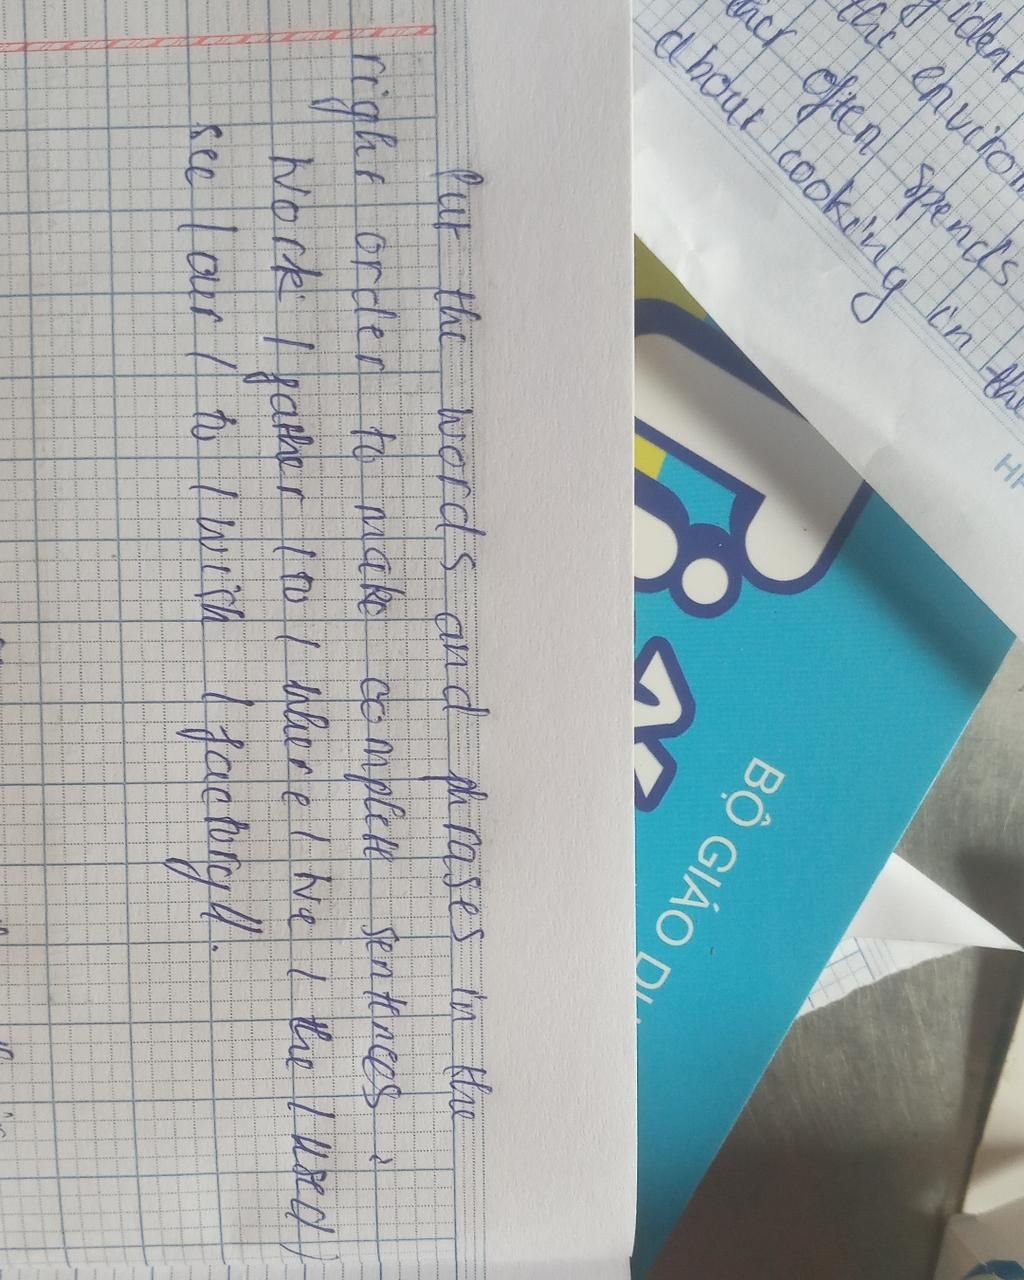 Put the words and phrases in the
right order to make complete sentences :
Work / father / to / where / We / the / used /
see / our / to / wish / factory//.
gident
the environ
their often spends
about cooking in the
BỘ GIÁO DỤ